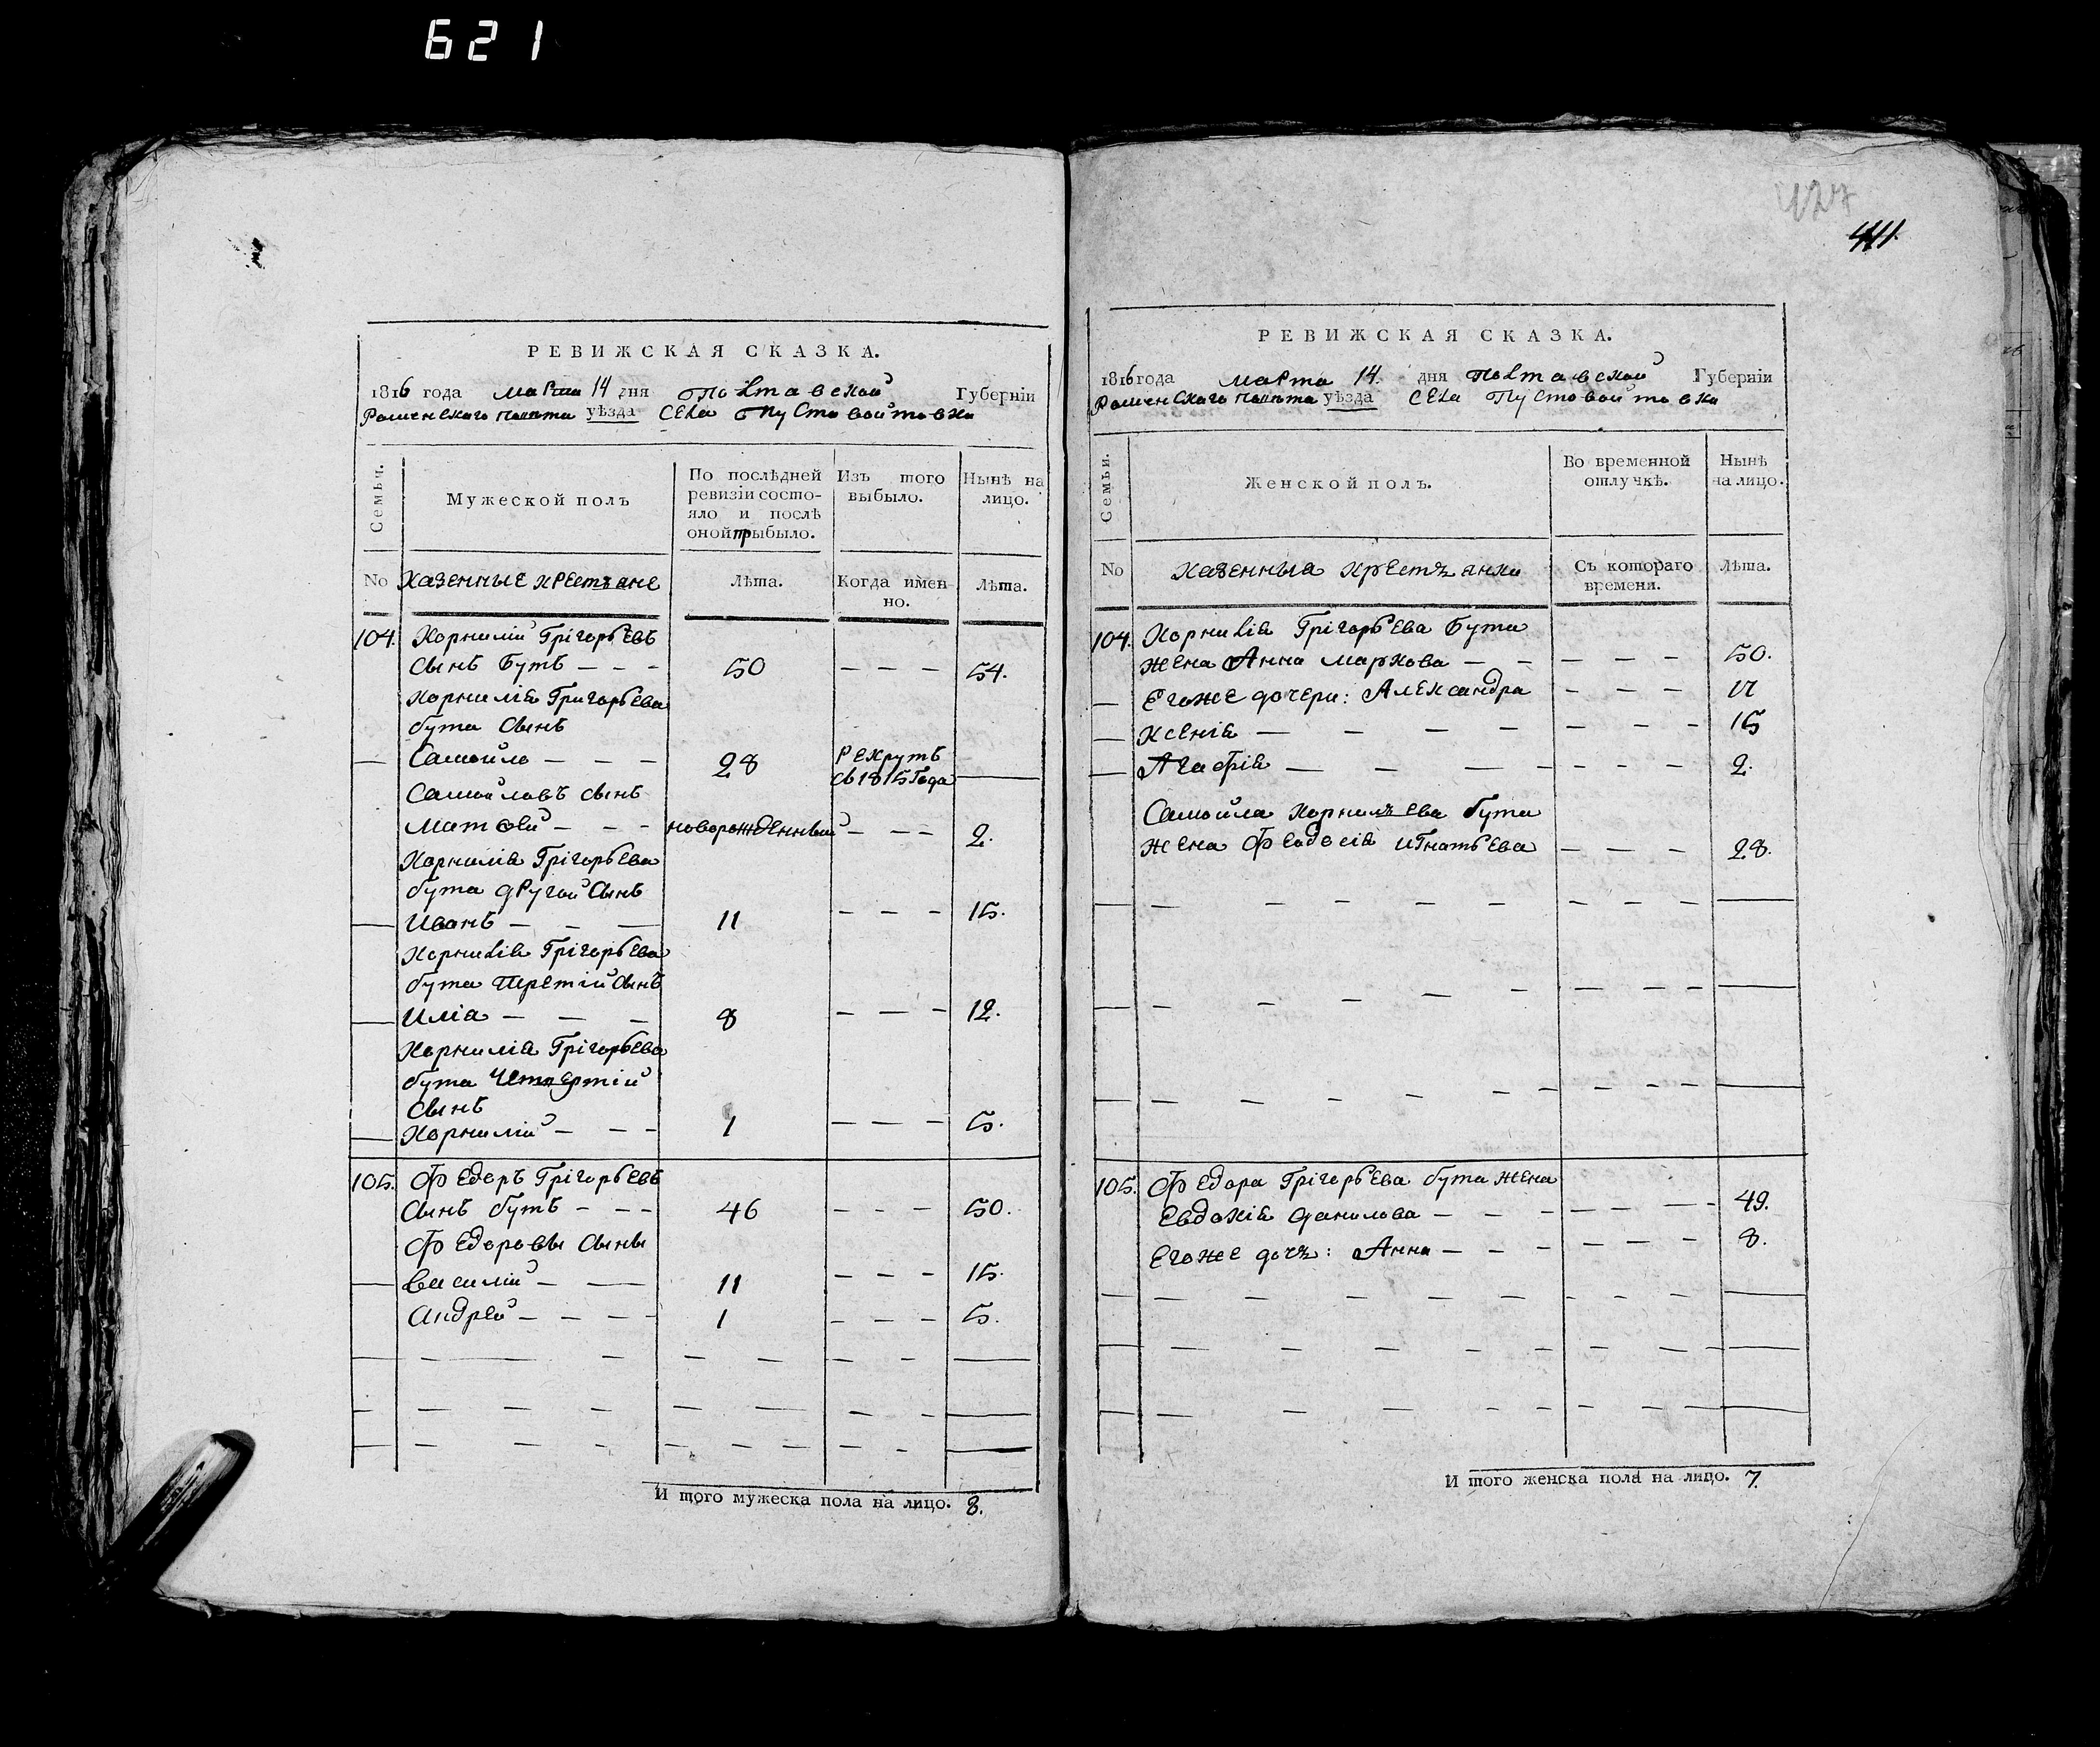 621
РЕВИЖСКАЯ СКАЗКА.
1816 года марта 14 дня Полтавской Губерніи
Роменского повѣта уѣзда села Пустовойтовки
Семьи.
Мужеской полъ
По послѣдней ревизіи состояло и послѣ оной прыбыло.
Изъ того выбыло.
Нынѣ на лицо.
No
Казенные крестъяне
Лѣта.
Когда имен-
но.
Лѣта.
104. Корнилій Грігорьевъ
сынъ Бутъ — — — 50 — — — 54.
Корнилія Григорьева
бута сынъ
Самойло — — — 28 рекрутъ
въ 1815 года
Самойловъ сынъ
Матвей — — — новорожденный — — — 2.
Корнилія Грігорьева
бута другой сынъ
Иванъ — — — 11 — — — 15.
Корнилія Грігорьева
бута третій сынъ
Иліа — — — 8 — — — 12.
Корнилія Грігорьева
бута четвертій
сынъ
Корнилій — — — 1 — — — 5.
105. Федоръ Грігорьевъ
сынъ бутъ — — — 46 — — — 50.
Федоровы сыны
Василій — — 11 — — — 15.
Андрей — — — — 1 — — — 5.
И того мужеска пола на лицо. 8.
427
411.
РЕВИЖСКАЯ СКАЗКА.
1816 года марта 14. дня Полтавской Губерніи
Роменского повѣта уѣзда села Пустовойтовки
Семьи.
Женской полъ.
Во временной отлучкѣ.
Нынѣ на лицо.
No
казенныя крестъянки
Съ котораго
времени.
Лѣта.
104. Корнилія Грігорьева Бута
жена Анна Маркова — — — — — 50.
Егоже дочери: Александра — — — 17
Ксенія — — — — — — — 15
Агафія — — — — — — — 2.
Самойла Корнилъева бута
жена Феодосія Игнатьева — — — 28.
105. Федора Грігорьева бута жена
Евдокія Данилова — — — — — — 49.
Егоже дочъ: Анна — — — — — — 8.
И того женска пола на лицо. 7.